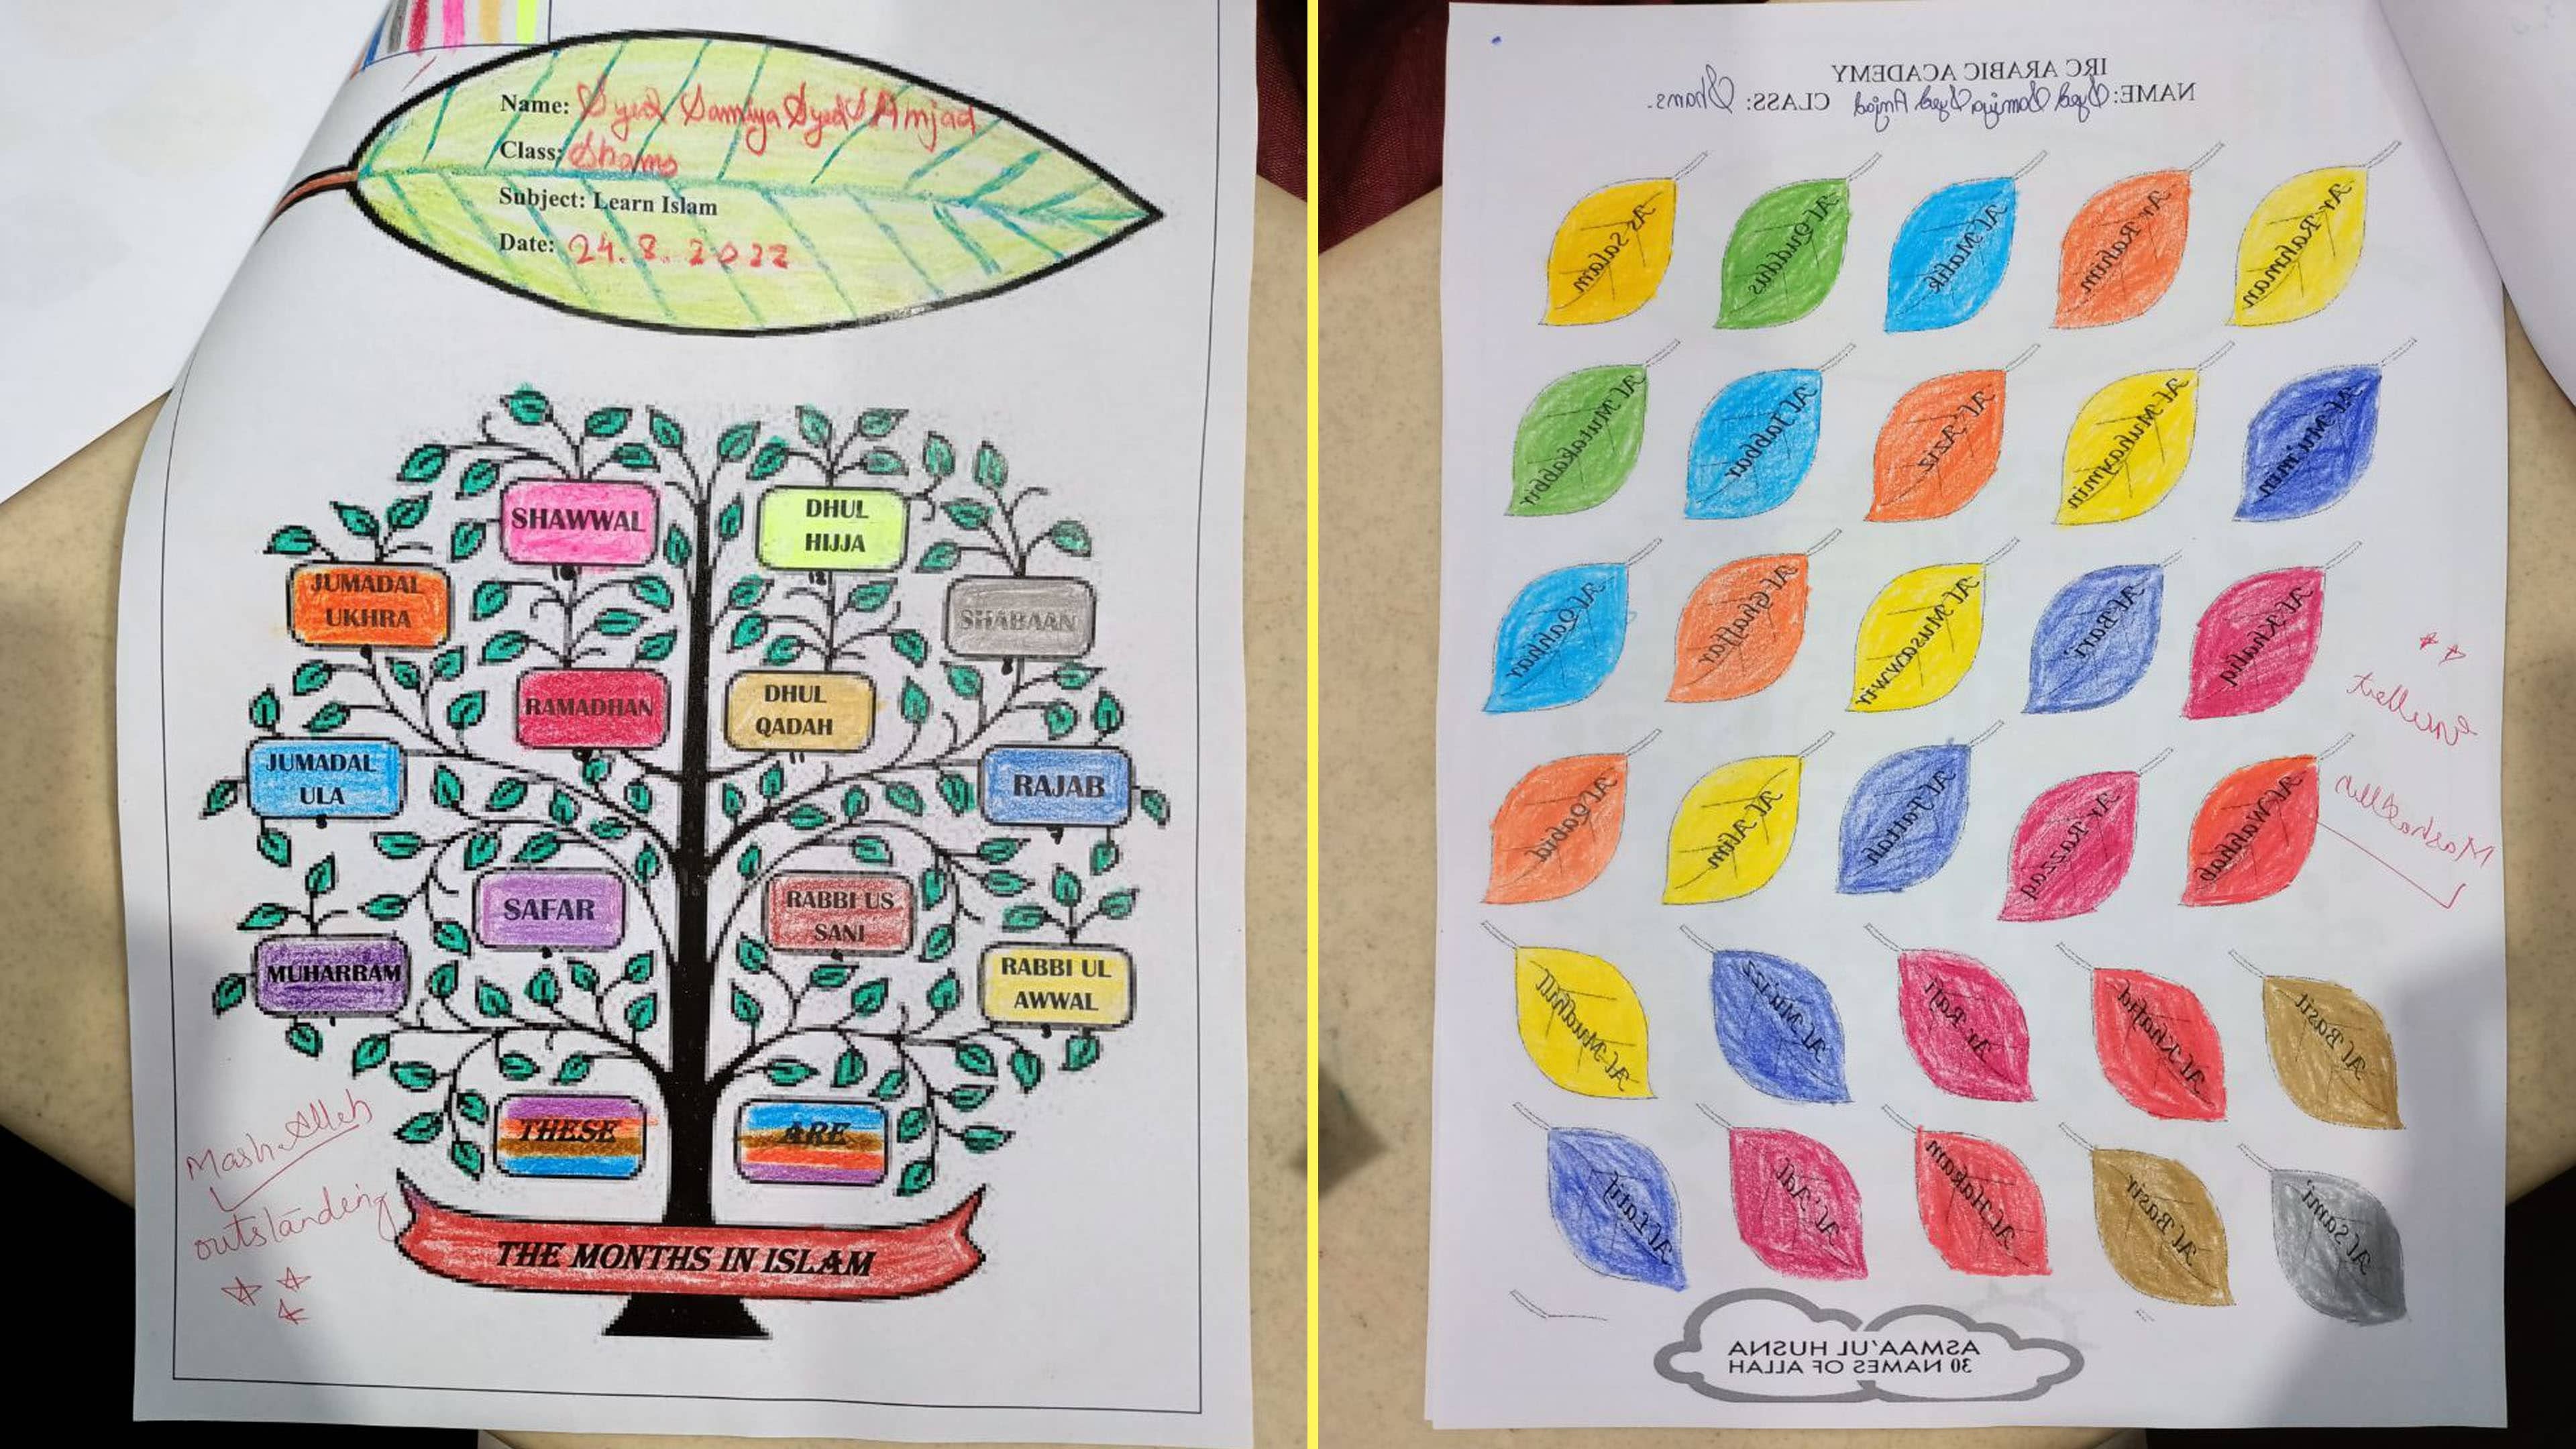 Name: Syed Samiya Syed Amjad
Class: Shams
Subject: Learn Islam
Date: 24.8.2022
SHAWWAL
10
DHUL
HIJJA
12
JUMADAL
UKHRA
6
SHABAAN
8
RAMADHAN
9
DHUL
QADAH
11
JUMADAL
ULA
5
RAJAB
7
SAFAR
2
RABBI US
SANI
4
MUHARRAM
1
RABBI UL
AWWAL
3
THESE
ARE
THE MONTHS IN ISLAM
MashaAllah
outstanding
IRC ARABIC ACADEMY
NAME: Syed Samiya Syed Amjad CLASS: Shams.
Ar Rahman
Ar Rahim
Al Malik
Al Quddus
As Salam
Al Mu'min
Al Muhaymin
Al 'Aziz
Al Jabbar
Al Mutakabbir
Al Khaliq
Al Bari'
Al Musawwir
Al Ghaffar
Al Qahhar
Al Wahhab
Ar Razzaq
Al Fattah
Al 'Alim
Al Qabid
Al Basit
Al Khafid
Ar Rafi
Al Mu'izz
Al Mudhill
Al Sami'
Al Basir
Al Hakam
Al 'Adl
Al Latif
Excellent
MashaAllah
ASMAA'UL HUSNA
30 NAMES OF ALLAH